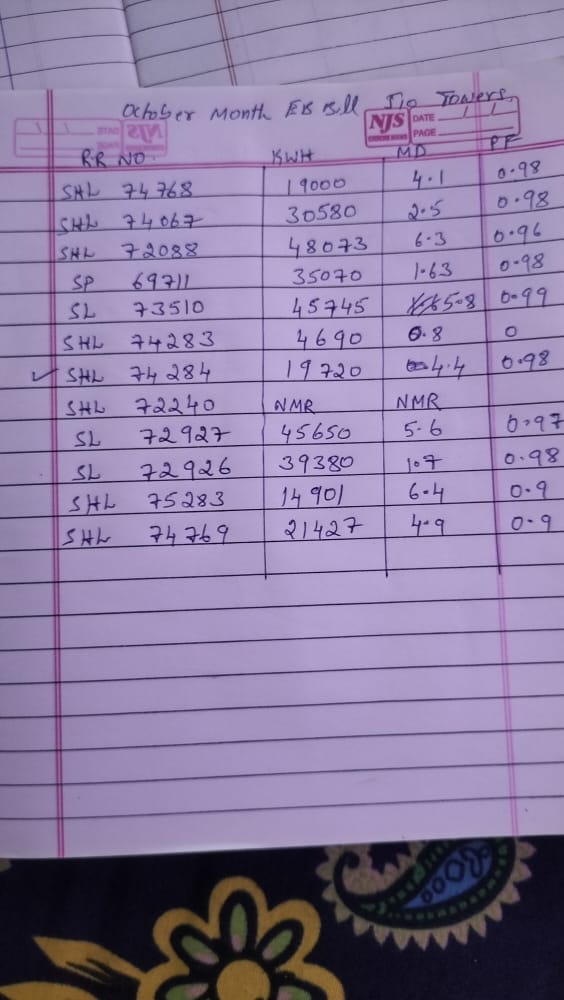 October Month EB Bill Jio Towers
NJS DATE / /
PAGE
RR NO. KWH MD PF
SHL 74768 19000 4.1 0.98
SHL 74067 30580 2.5 0.98
SHL 72088 48073 6.3 0.96
SP 69711 35070 1.63 0.98
SL 73510 45745 5.8 0.99
SHL 74283 4690 0.8 0
✓ SHL 74284 19720 4.4 0.98
SHL 72240 NMR NMR
SL 72927 45650 5.6 0.97
SL 72926 39380 1.07 0.98
SHL 75283 14901 6.4 0.9
SHL 74769 21427 4.9 0.9